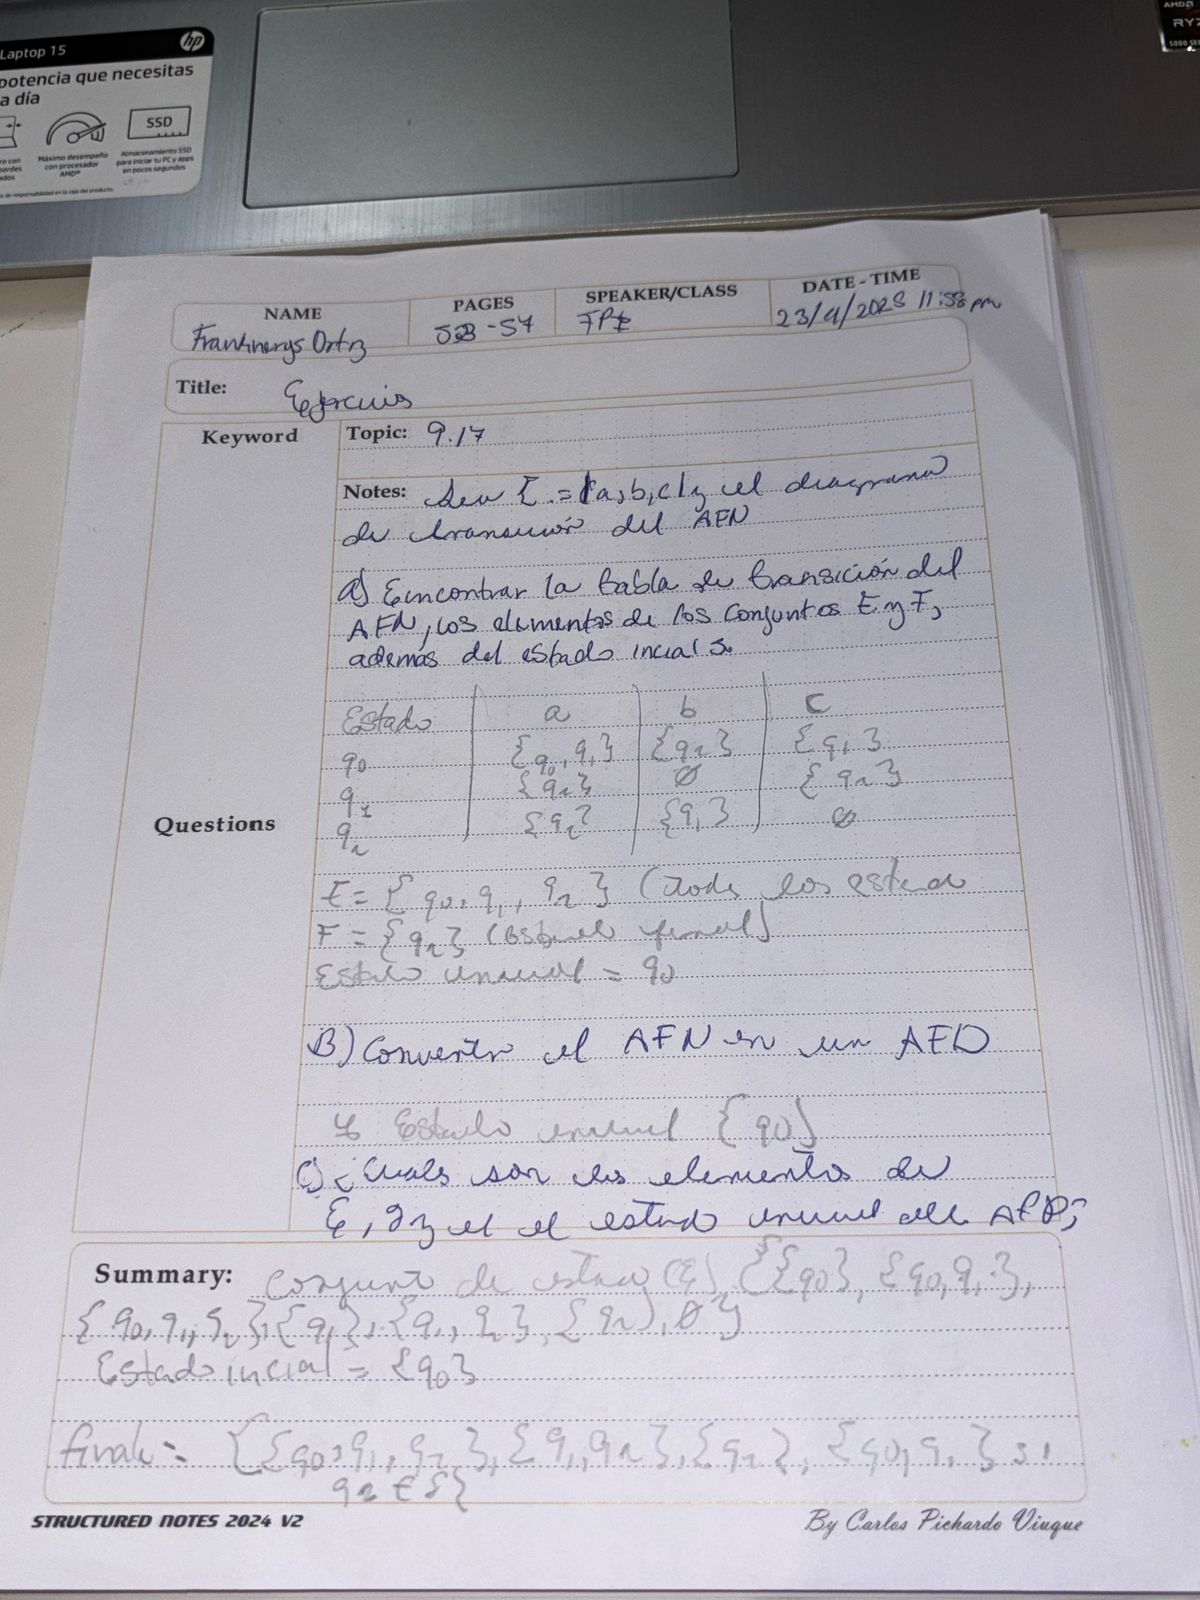 Laptop 15
hp
potencia que necesitas
a día
SSD
Máximo desempeño
con procesador
AMD®
Almacenamiento SSD
para iniciar tu PC y apps
en pocos segundos
AMD
RYZ
5000 SER
NAME
PAGES
SPEAKER/CLASS
DATE - TIME
Ortiz
-54
11:58 pm
Title:
Keyword
Topic: 9.17
Notes: Sea Σ = {a,b,c} y el diagrama
de transición del AFN
a) Encontrar la tabla de transición del
AFN, los elementos de los conjuntos E y F,
además del estado incial S.
Estado a b c
q0 {q0, q1} {q2} {q1}
q1 {q2} ∅ {q2}
q2 {q2} {q1} ∅
Questions
E = {q0, q1, q2} (Todos los estado
F = {q2} (
Estado = q0
B) Convertir el AFN en un AFD
Estado {q0}
C) ¿Cuals son los elementos de
E, y el el estado del AFD?
Summary: Conjunto de (E) {{q0}, {q0, q1},
{q0, q1, q2}, {q1}, {q1, q2}, {q2}, ∅}
Estado incial = {q0}
= {{q0, q1, q2}, {q1, q2}, {q2}, {q0, q1} si
q2 ∈ S}
STRUCTURED NOTES 2024 V2
By Carlos Pichardo Viuque